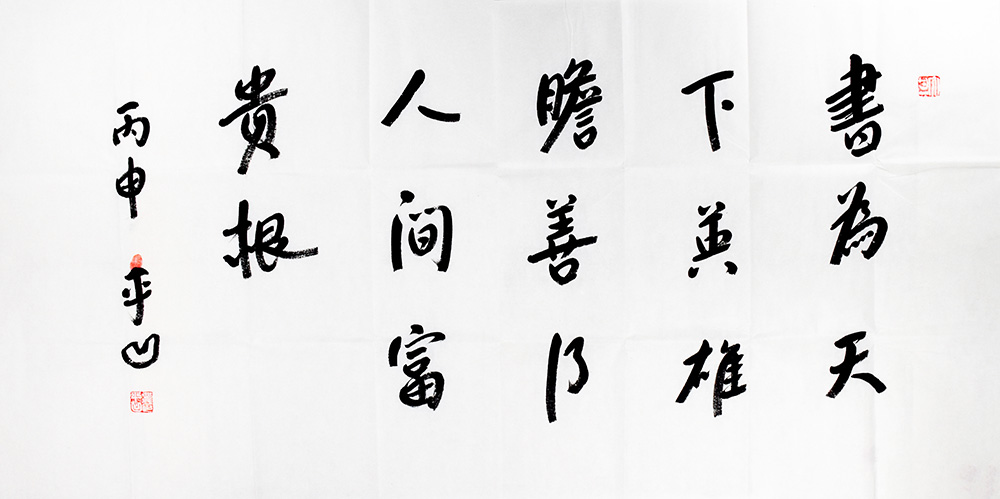 書為天
下英雄
瞻善乃
人间富
貴根
丙申 平凹